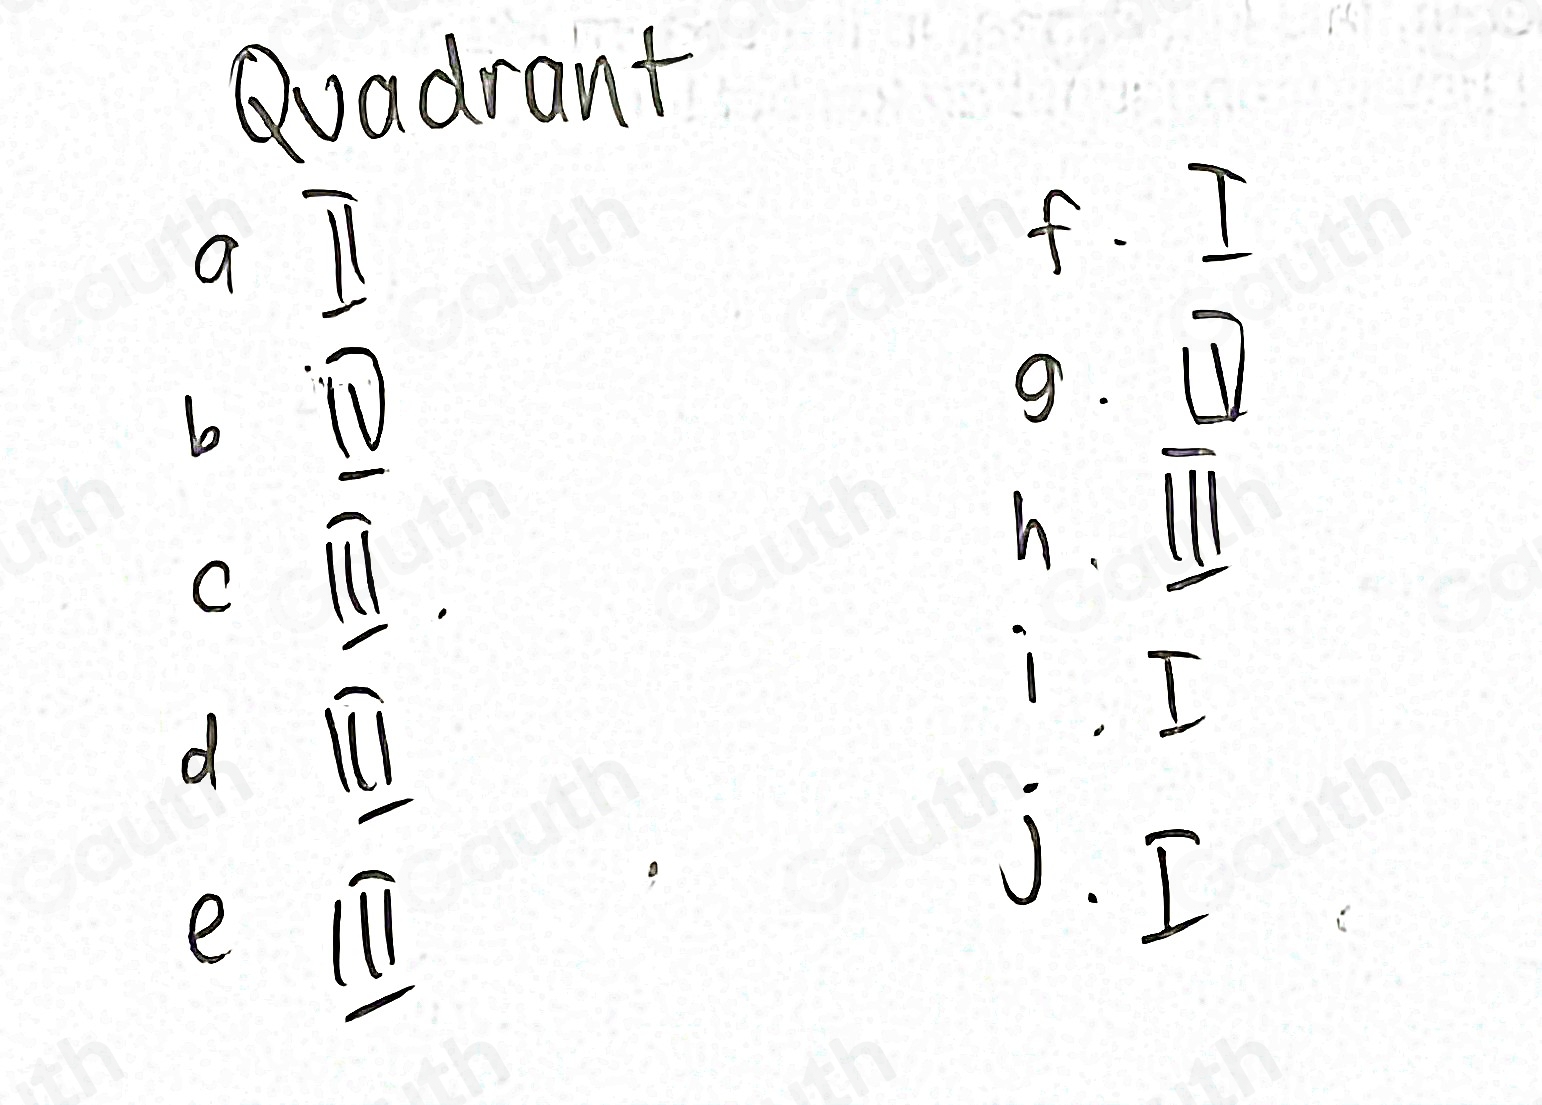 Quadrant
a II
b IV
c III.
d III
e III
f. I
g. IV
h. III
i. I
j. I